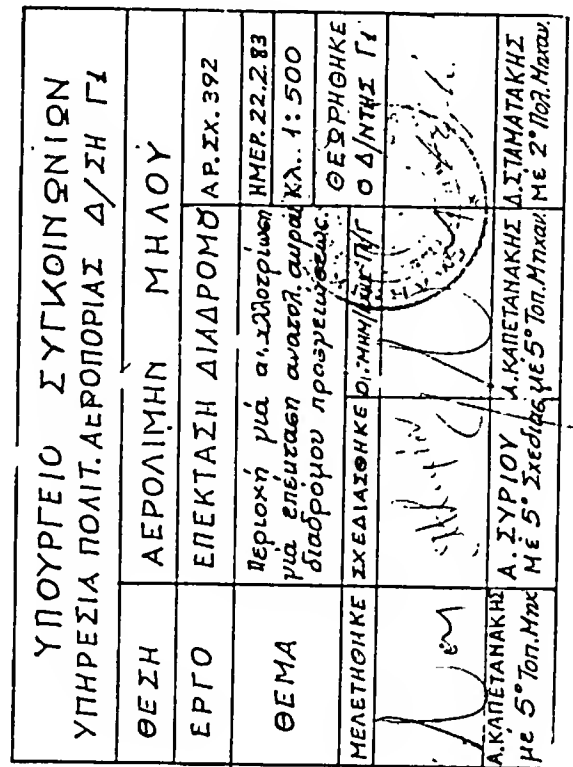 ΥΠΟΥΡΓΕΙΟ ΣΥΓΚΟΙΝΩΝΙΩΝ
ΥΠΗΡΕΣΙΑ ΠΟΛΙΤ. ΑΕΡΟΠΟΡΙΑΣ Δ/ΣΗ Γ1
ΘΕΣΗ ΑΕΡΟΛΙΜΗΝ ΜΗΛΟΥ
ΕΡΓΟ ΕΠΕΚΤΑΣΗ ΔΙΑΔΡΟΜΟ ΑΡ.ΣΧ. 392
ΘΕΜΑ
Περιοχή γιά
γιά επέκταση ανατολ.
διαδρόμου προσγειώσεως.
ΗΜΕΡ. 22.2.83
ΚΛ.. 1:500
ΘΕΩΡΗΘΗΚΕ
Ο Δ/ΝΤΗΣ Γ1
ΜΕΛΕΤΗΘΗΚΕ ΣΧΕΔΙΑΣΘΗΚΕ
Α.ΚΑΠΕΤΑΝΑΚΗΣ
με 5° Τοπ.Μηχ
Α. ΣΥΡΙΟΥ
ΜΕ 5° Σχεδιας
Α.ΚΑΠΕΤΑΝΑΚΗΣ
ΜΕ 5° Τοπ.Μηχαν.
Δ.ΣΤΑΜΑΤΑΚΗΣ
ΜΕ 2° Πολ.Μηχαν.